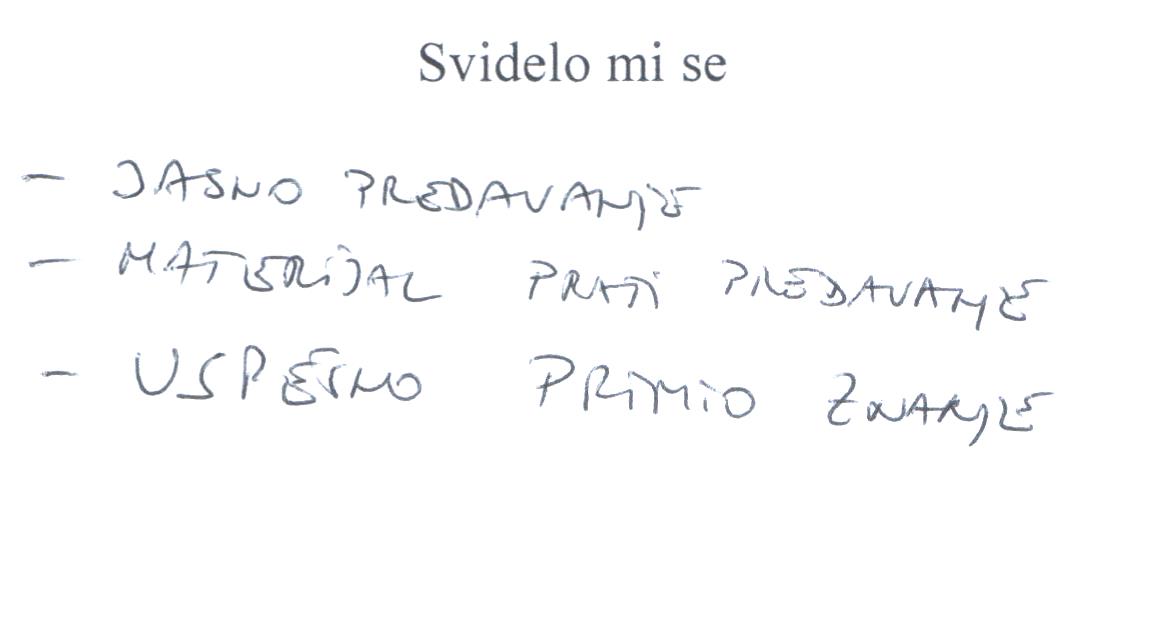 Svidelo mi se
- JASNO PREDAVANJE
- MATERIJAL PRATI PREDAVANJE
- USPEŠNO PRIMIO ZNANJE